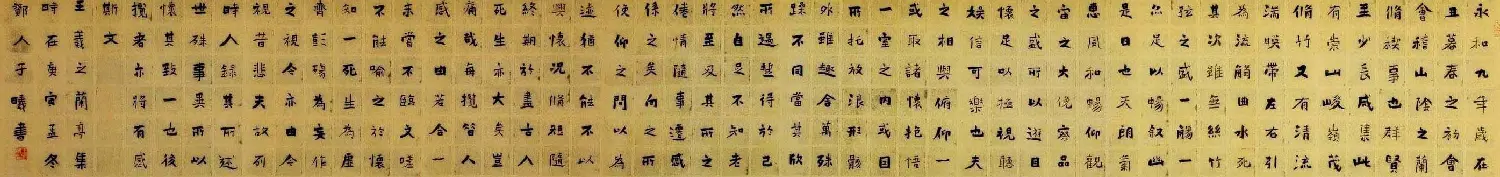 永和九年歲在
丑暮春之初會
會稽山陰之蘭
脩禊事也群賢
至少長咸集此
有崇山峻嶺茂
脩竹又有清流
湍暎帶左右引
為流觴曲水列
其次雖無絲竹
弦之盛一觴一
亦足以暢叙幽
是日也天朗氣
惠風和暢仰觀
宙之大俛察品
之盛所以遊目
懷足以極視聽
娛信可樂也夫
之相與俯仰一
或取諸懷抱悟
一室之內或因
所托放浪形骸
外雖趣舍萬殊
躁不同當其欣
所遇蹔得於己
然自足不知老
將至及其所之
倦情隨事遷感
係之矣向之所
俛仰之間以為
迹猶不能不以
興懷況脩短隨
終期於盡古人
死生亦大矣豈
痛哉每攬昔人
感之由若合一
未嘗不臨文嗟
不能喻之於懷
知一死生為虛
齊彭殤為妄作
之視今亦由今
視昔悲夫故列
時人錄其所述
世殊事異所以
懷其致一也後
攬者亦將有感
斯文
王羲之蘭亭集
時在庚寅孟冬
人子疇書